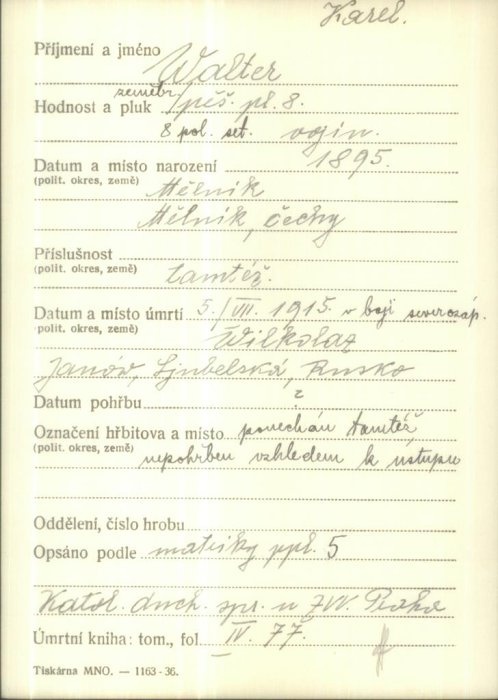 Karel.
Příjmení a jméno Walter
zeměbr.
Hodnost a pluk pěš. pl. 8.
8 pol. set.
Datum a místo narození 1895.
(polit. okres, země) Mělník
Mělník, Čechy
Příslušnost
(polit. okres, země) tamtéž.
Datum a místo úmrtí 5/VII. 1915 v boji severozáp.
(polit. okres, země) Wilkolaz
Janów, Ljubelská, Rusko
Datum pohřbu ?
Označení hřbitova a místo ponechán tamtéž,
(polit. okres, země) nepohřben vzhledem k ústupu
Oddělení, číslo hrobu
Opsáno podle matriky ppl. 5
Katol. duch. spr. u ZVV. Praha
Úmrtní kniha: tom., fol. IV. 77.
Tiskárna MNO. — 1163-36.